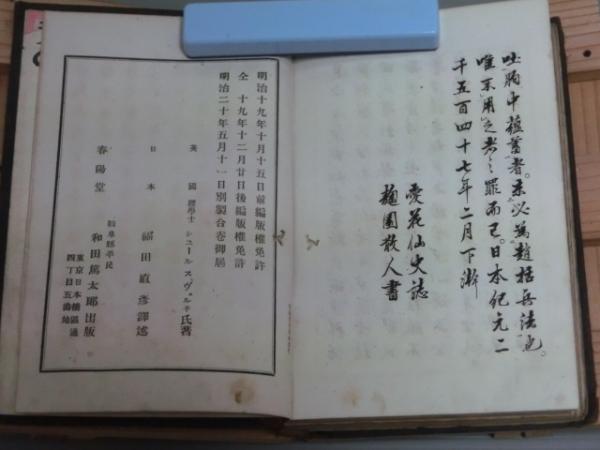 吐胸中蘊蓄者。亦必為趙括兵法也。
唯不用之者之罪而已。日本紀元二
千五百四十七年二月下澣
愛花仙史誌
麹園散人書
明治十九年十月十五日前編版權免許
仝 十九年十二月廿日後編版權免許
明治二十年五月十一日別製合巻御届
英國 理學士 シユールスヴェルネ氏著
日本 福田直彦譯述
春陽堂 岐阜縣平民 和田篤太郎出版
東京日本橋區通
四丁目五番地